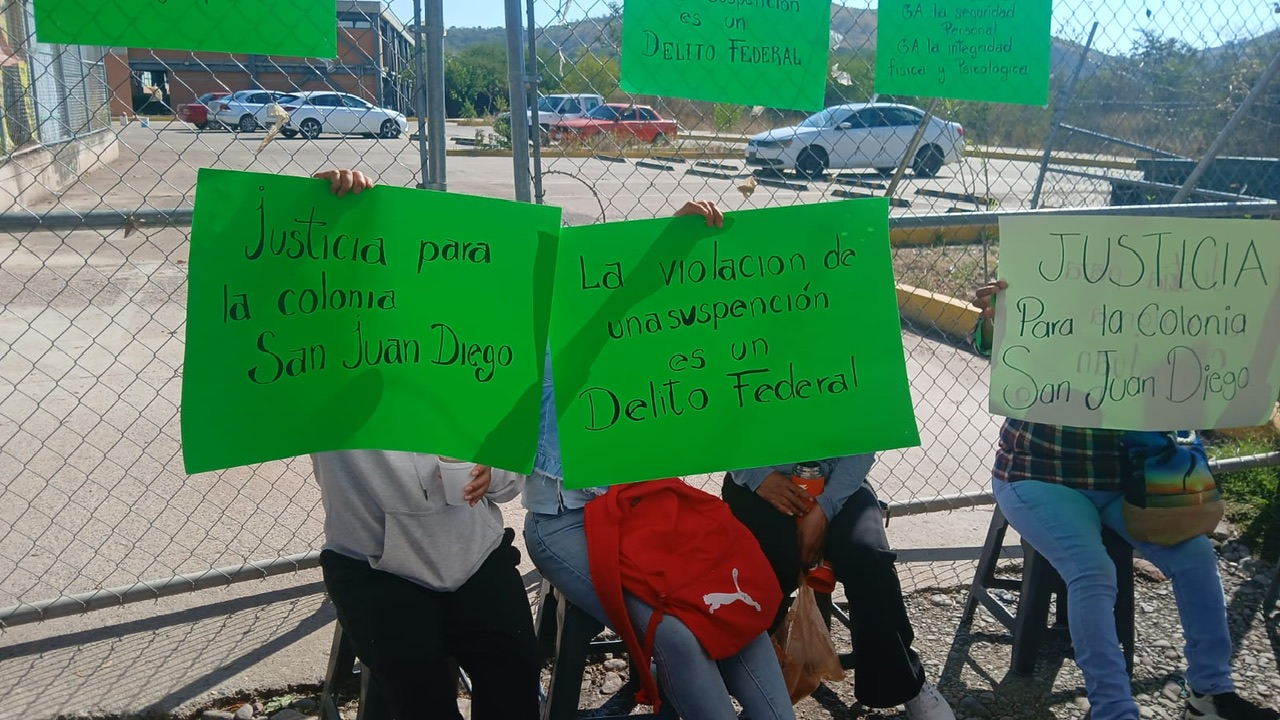 suspención
es un
DELITO FEDERAL
GA la seguridad
Personal
GA la integridad
física y Psicologica
Justicia para
la colonia
San Juan Diego
La violacion de
una suspención
es un
Delito Federal
JUSTICIA
Para la Colonia
San Juan Diego